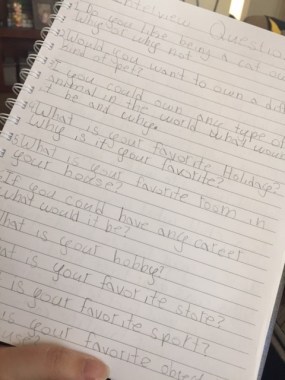 Interview Questio
Do you like being a cat ow
Why or why not
2 Would you want to own a diff
kind of pet?
If you could own any type of
animal in the world what woul
it be and why.
4 What is your favorite Holiday?
Why is it your favorite?
5 What is your favorite room in
your house?
If you could have any career
what would it be?
What is your hobby?
at is your favorite store?
is your favorite sport?
is your favorite object